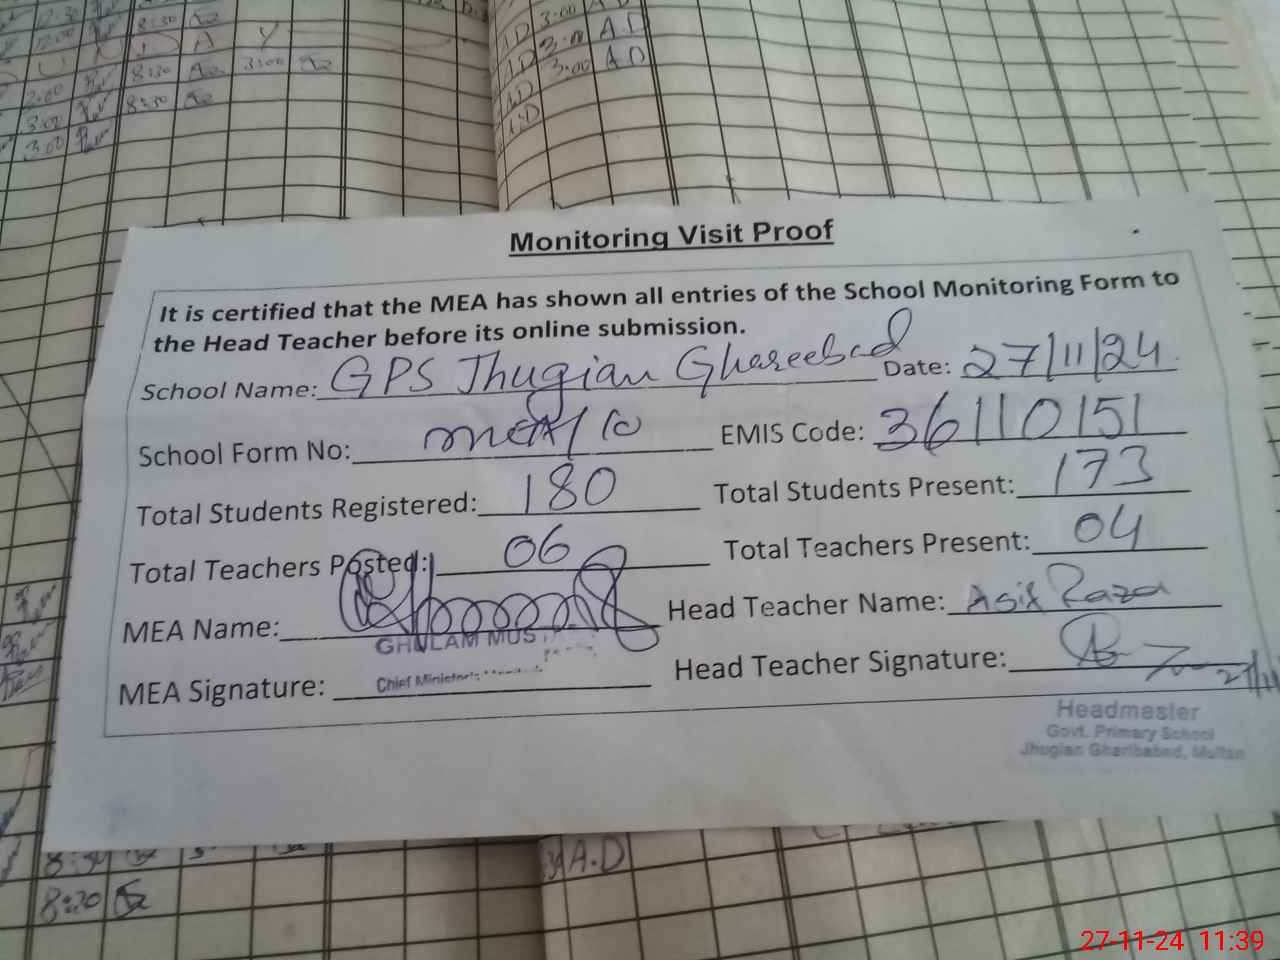 12:30 8:30
12:00 D A Y
2:00 8:30 3:00
3:00 8:30
3:00
A.D 3:00 A.D
A.D 3:00 A.D
A.D 3:00 A.D
A.D
A.D
Monitoring Visit Proof
It is certified that the MEA has shown all entries of the School Monitoring Form to
the Head Teacher before its online submission.
School Name: GPS Jhugian Ghareebad Date: 27/11/24
School Form No: EMIS Code: 36110151
Total Students Registered: 180 Total Students Present: 173
Total Teachers Posted: 06 Total Teachers Present: 04
MEA Name: Head Teacher Name: Asif Raza
GHULAM
MEA Signature: Chief Head Teacher Signature:
Headmaster
Govt. Primary School
Jhugian Gharibabad, Multan
8:30
8:20
A.D
27-11-24 11:39